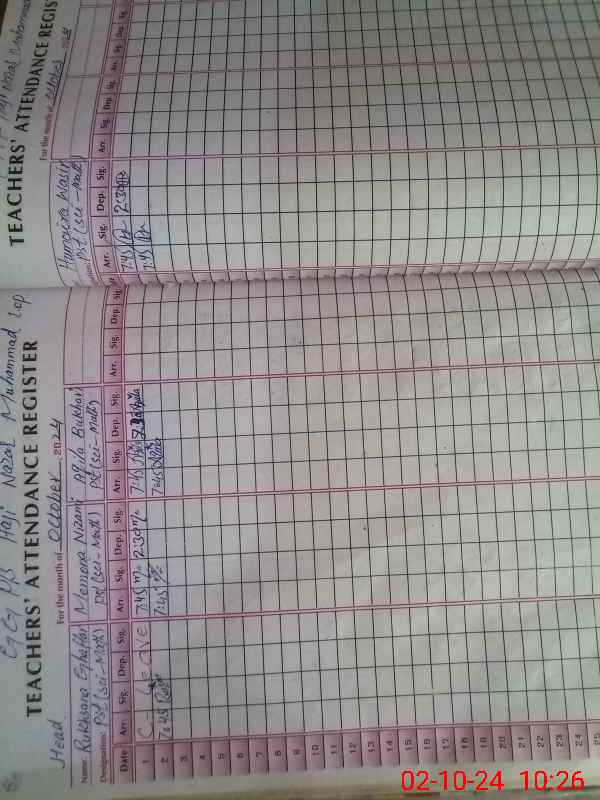 GGPS Haji Nazar Muhammad Lep
TEACHERS' ATTENDANCE REGISTER
For the month of October, 2024
Head
Name: Rukhsana Memona Nizami Aqila Bukhari
Designation: Pst (sci-Math) Pst (sci-Math) Pst (sci-Math)
Date Arr. Sig. Dep. Sig. Arr. Sig. Dep. Sig. Arr. Sig. Dep. Sig. Arr. Sig. Dep. Sig.
1 C - Leave 7:45 2:30 7:45
2 7:45 7:45 7:45
3
4
5
6
7
8
9
10
11
12
13
14
15
16
17
18
19
20
21
22
23
24
25
Haji Nazar Muhammad
TEACHERS' ATTENDANCE REGIS
For the month of October 2024
Humaira Nasir
Pst (sci-Math)
Arr. Sig. Dep. Sig. Arr. Sig. Dep. Sig. Arr. Sig. Dep. Sig.
7:45 2:30
7:45
02-10-24 10:26